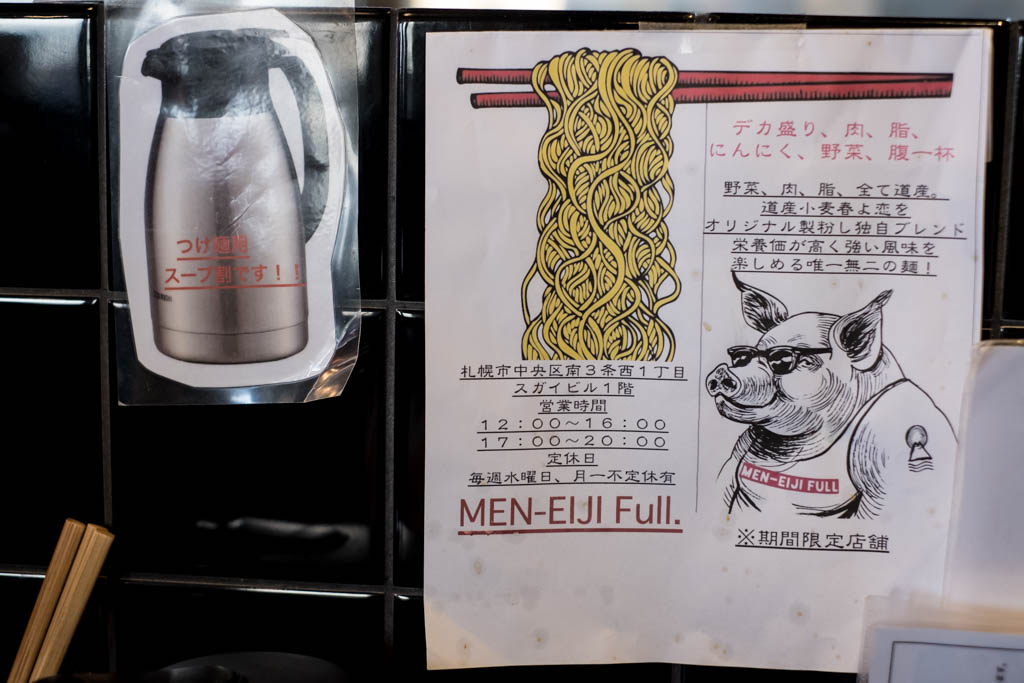 つけ麺用
スープ割です！！
デカ盛り、肉、脂、
にんにく、野菜、腹一杯
野菜、肉、脂、全て道産。
道産小麦春よ恋を
オリジナル製粉し独自ブレンド
栄養価が高く強い風味を
楽しめる唯一無二の麺！
札幌市中央区南３条西１丁目
スガイビル１階
営業時間
１２：００～１６：００
１７：００～２０：００
定休日
毎週水曜日、月一不定休有
MEN-EIJI Full.
MEN-EIJI FULL
※期間限定店舗